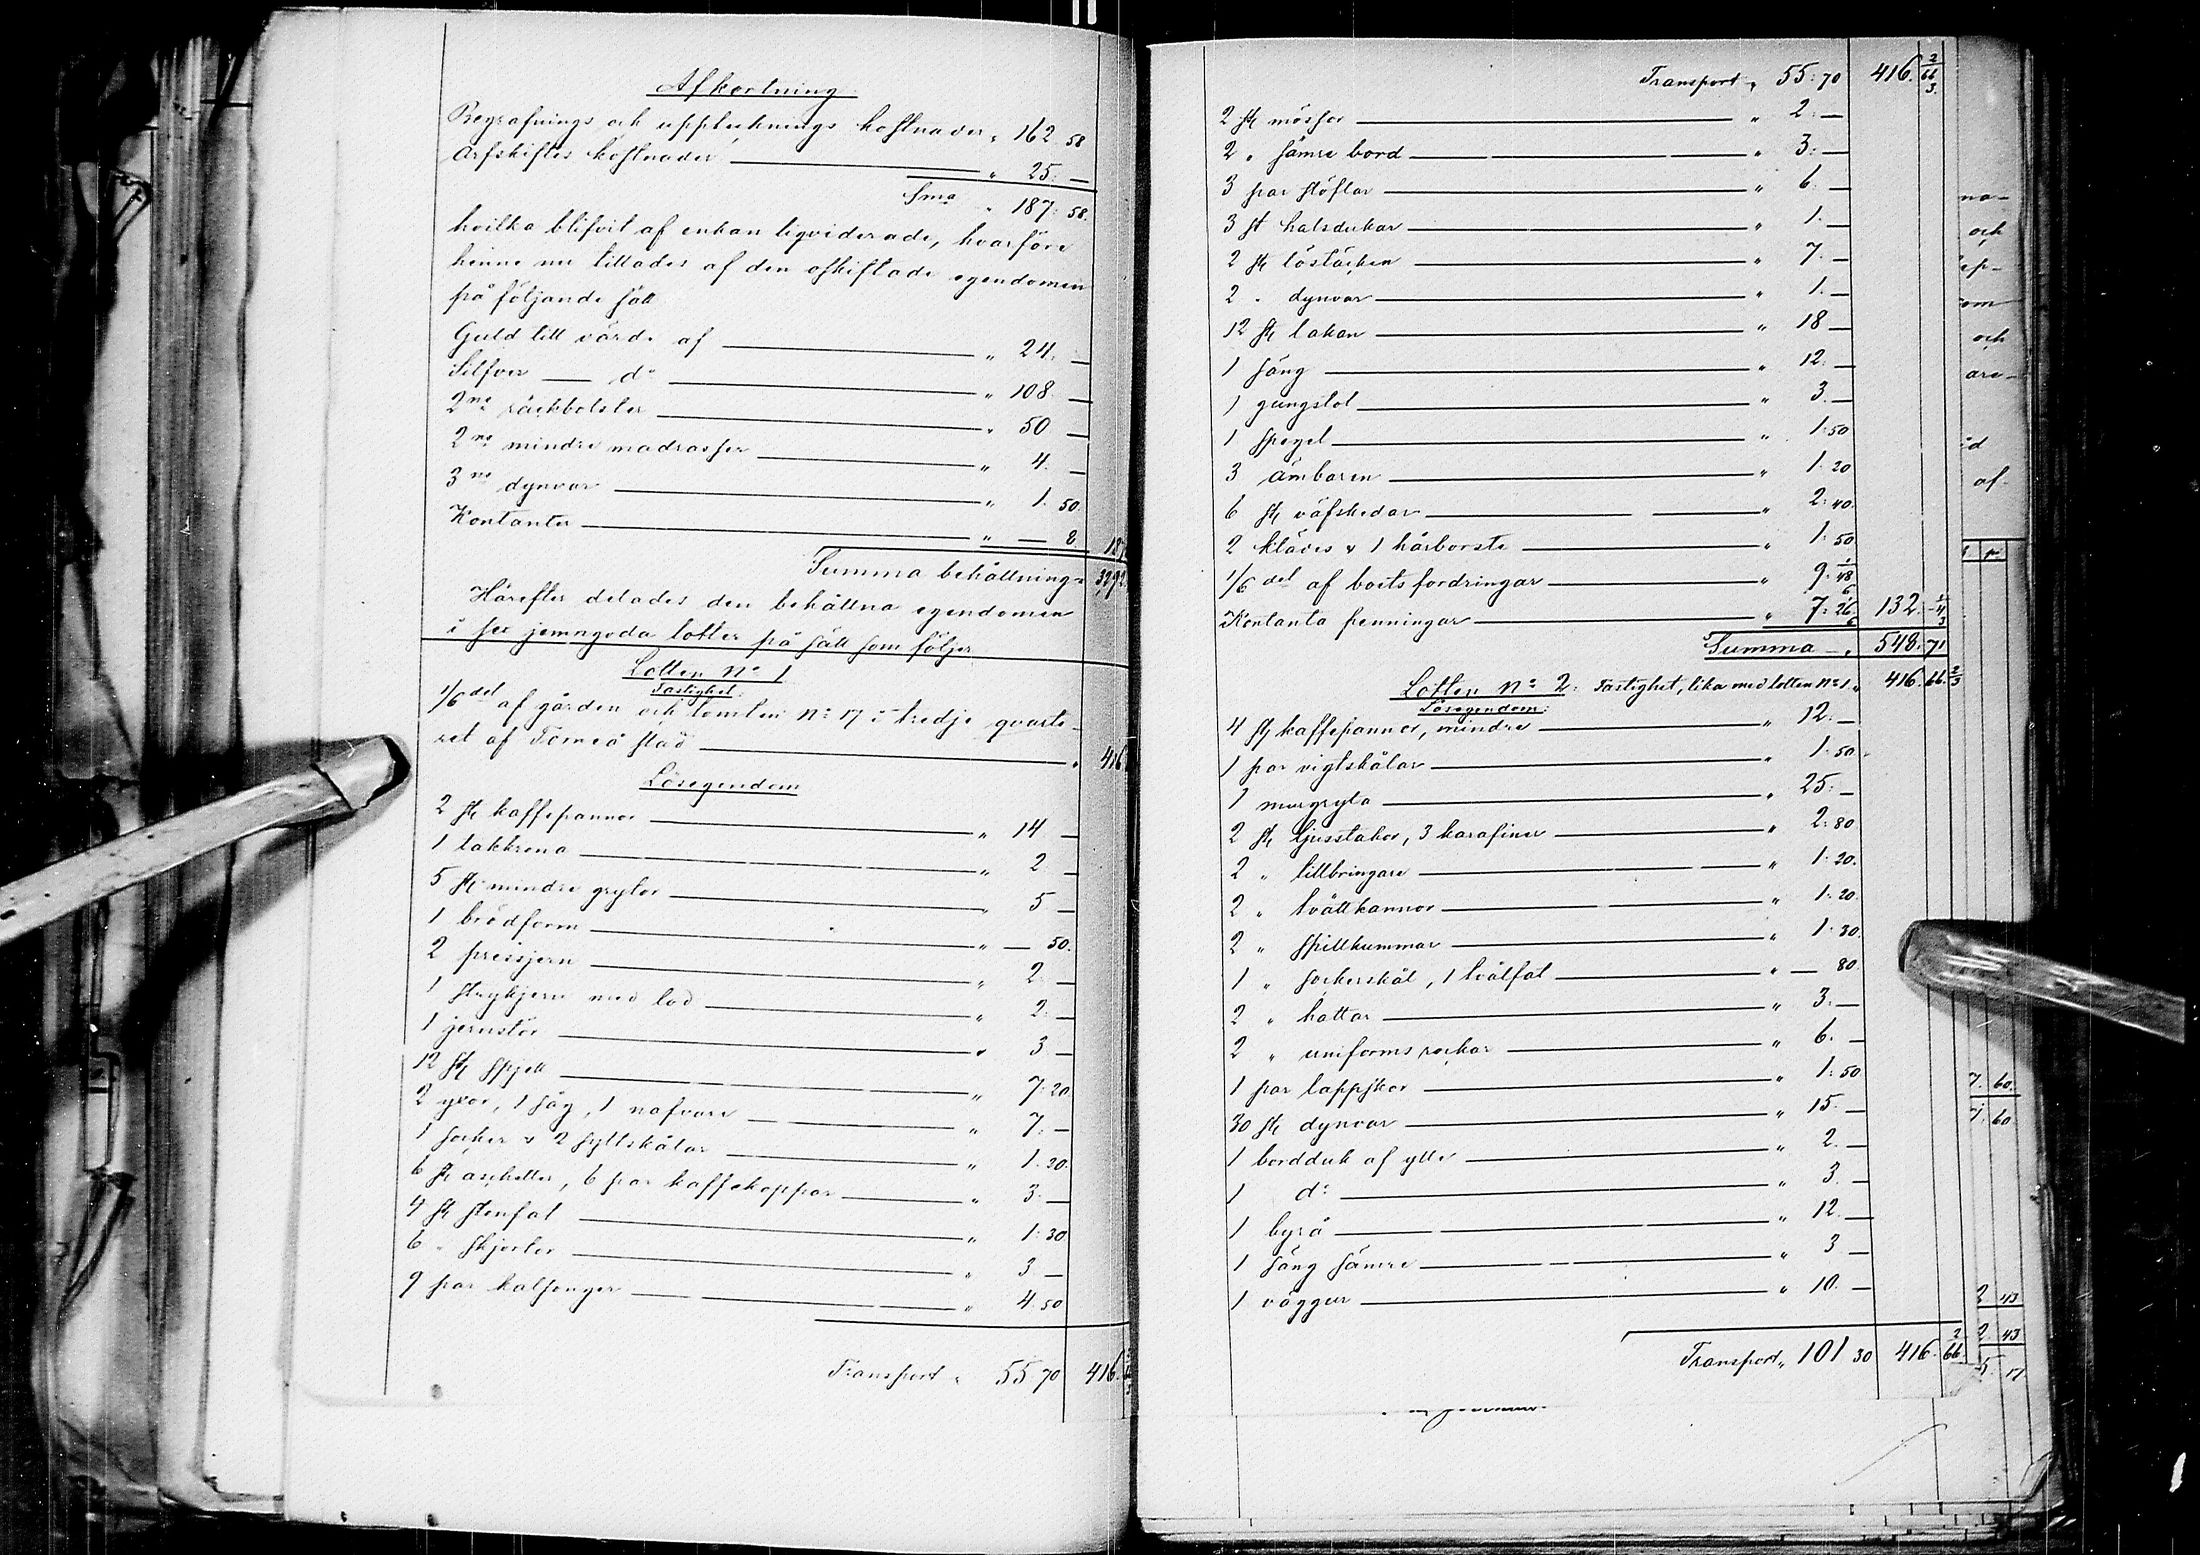 Afkortning
Begrafnings och uppteknings kostnader „ 162. 58
Arfskiftes kostnader „ 25. —
Sma „ 187: 58.
hvilka blifvit af enkan liqviderade, hvarföre
henne nu tillades af den afskiftade egendomen
på följande sätt
Guld till värde af „ 24. —
Silfver — do „ 108. —
2ne säckbolster „ 50 —
2ne mindre madrasser „ 4. —
3ne dynvar „ 1. 50.
Kontanter „ — 8 187
Summa behållning „ 3292
Härefter delades den behållna egendomen
i sex jemngoda lotter på sätt som följer
Lotten No 1
Fastighet:
1/6 del af gården och tomten No 17 i tredje qvarte-
ret af Torneå stad „ 416
Lösegendom
2 st kaffepannor „ 14 —
1 takkrona „ 2 —
5 st mindre grytor „ 5 —
1 brödform „ — 50.
2 pressjern „ 2. —
1 strykjern med lod „ 2. —
1 jernstör „ 3 —
12 st spjell „ 7. 20
2 yxor, 1 såg, 1 nafvare „ 7. —
1 socker & 2 syltskålar „ 1. 20.
6 st asietter, 6 par kaffekoppar „ 3. —
4 st stenfat „ 1. 30
6 „ skjortor „ 3 —
9 par kalsonger „ 4. 50
Transport „ 55 70 416. 66 2/3
Transport „ 55: 70 416. 66 2/3
2 st mössor „ 2. —
2 „ sämre bord „ 3. —
3 par stöflar „ 6. —
3 st halsdukar „ 1. —
2 st löstäcken „ 7. —
2 „ dynvar „ 1. —
12 st lakan „ 18 —
1 säng „ 12. —
1 gungstol „ 3. —
1 spegel „ 1. 50
3 ämbaren „ 1. 20
6 st väfskedar „ 2: 40.
2 kläder & 1 hårborste „ 1. 50
1/6 del af boets fordringar „ 9. 48 1/6
Kontanta penningar „ 7: 26 1/6 132. 4 1/3
Summa „ 548. 71
Lotten No 2: Fastighet, lika med lotten No 1 „ 416. 66. 2/3
Lösegendom:
4 st kaffepannor, mindre „ 12: —
1 par vigtskålar „ 1: 50.
1 murgryta „ 25: —
2 st ljusstakar, 3 karafiner „ 2: 80
2 „ tillbringare „ 1: 20.
2 „ tvättkannor „ 1. 20
2 „ spillkummar „ 1. 30.
1 „ sockerskål, 1 tvålfat „ — 80.
2 „ hattar „ 3: —
2 „ uniforms rockar „ 6. —
1 par lappskor „ 1: 50
30 st dynvar „ 15. —
1 bordduk af ylle „ 2. —
1 do „ 3. —
1 byrå „ 12. —
1 säng sämre „ 3 —
1 väggur „ 10. —
Transport „ 101 30 416. 66 2/3
na-
och
om
och
are-
id
af
7. 60.
7. 60
2 43
2. 43
5. 17